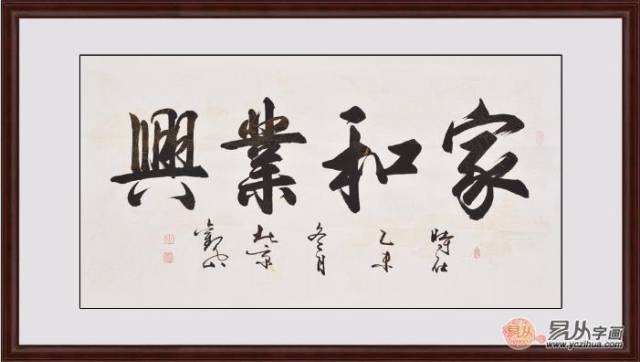 家和業興
時在
乙未
冬月
北京
易从
易从字画
www.yczihua.com